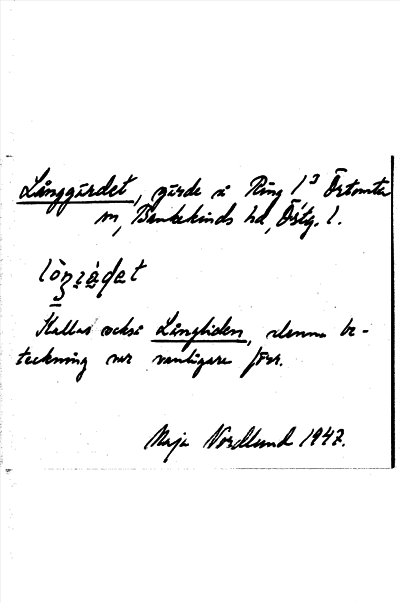 Långgärdet, gärde i Ring 1³ Örtomta
sn, Bankekinds hd, Östg. l.
Kallas också Långliden, denna be-
teckning var vanligare förr.
Maja Nordlund 1947.